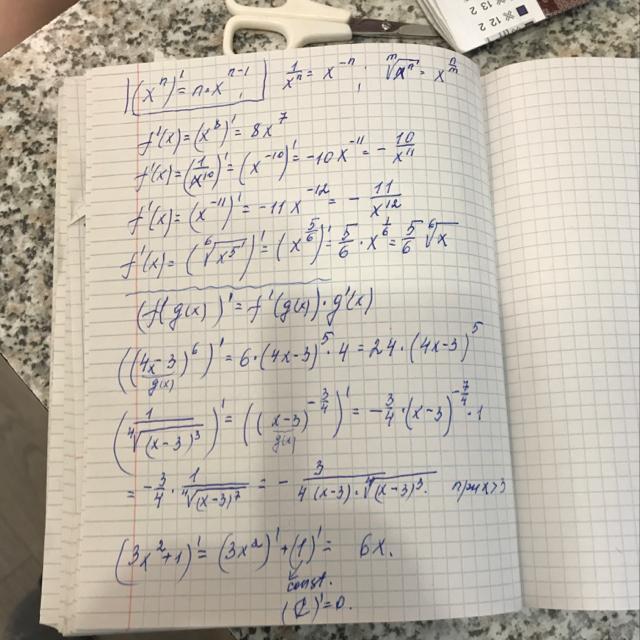 (xⁿ)' = n·xⁿ⁻¹, 1/xⁿ = x⁻ⁿ; ᵐ√xⁿ = x^(n/m)
f'(x) = (x⁸)' = 8x⁷
f'(x) = (1/x¹⁰)' = (x⁻¹⁰)' = -10x⁻¹¹ = -10/x¹¹
f'(x) = (x⁻¹¹)' = -11x⁻¹² = -11/x¹²
f'(x) = (⁶√x⁵)' = (x^(5/6))' = 5/6·x^(1/6) = 5/6 ⁶√x
(f(g(x))' = f'(g(x))·g'(x)
((4x-3)⁶)' = 6·(4x-3)⁵·4 = 24·(4x-3)⁵
g(x)
(1/⁴√(x-3)³)' = ((x-3)^(-3/4))' = -3/4·(x-3)^(-7/4)·1
g(x)
= -3/4·1/⁴√(x-3)⁷ = -3/(4(x-3)·⁴√(x-3)³). при x>3
(3x²+1)' = (3x²)'+(1)' = 6x.
const.
(C)'=0.
13 2
12 2